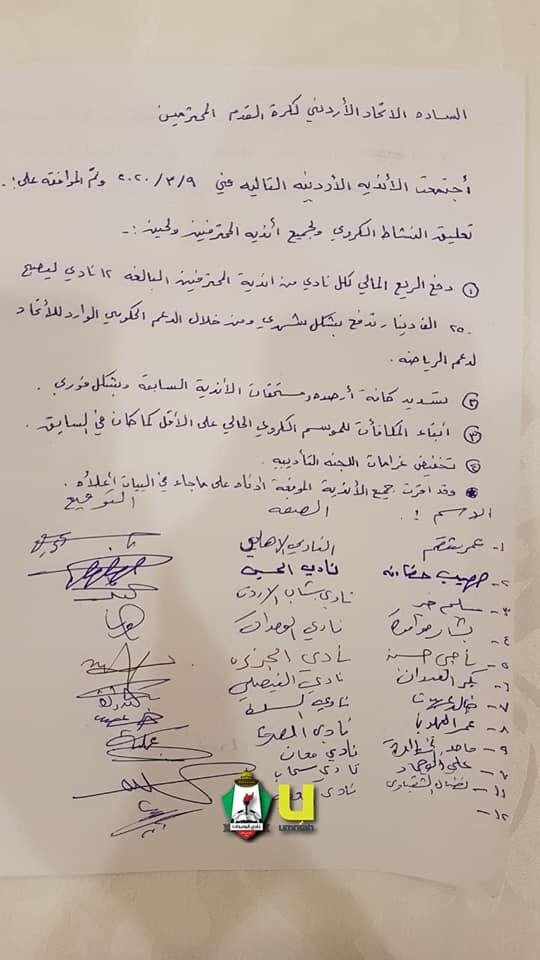 الساده الاتحاد الأردني لكرة القدم المحترمين
أجتمعت الأنديه الأردنيه التاليه في ٢٠٢٠/٣/٩ وتم الموافقه على :.
تعليق النشاط الكروي ولجميع أنديه المحترفين ولحين :-
① دفع الريع المالي لكل نادي من اندية المحترفين البالغه ١٢ نادي ليصبح
٢٥٠ الف دينار تدفع بشكل شهري ومن خلال الدعم الحكومي الوارد للأتحاد
لدعم الرياضه .
② تسديد كافة أرصده ومستحقات الأندية السابقة وبشكل فوري .
③ أبقاء المكافأت للموسم الكروي الحالي على الأقل كما كان في السابق .
④ تخفيض غرامات اللجنه التأديبيه .
وقد اقرت جميع الأندية الموقعة ادناه على ماجاء في البيان أعلاه .
الاسم : الصفه التوقيع
١- عمر النادي الاهلي
٢- نادي الحسين
٣- سليم خير نادي شباب الاردن
٤- بشار نادي الوحدات
٥- ناجي حسن نادي الجزيره
٦- بكر العدوان نادي الفيصلي
٧- خالد نادي السلط
٨- عمر نادي
٩- نادي معان
علي نادي سحاب
١١- نضال نادي
١٢-
نادي الوحدات
umniah